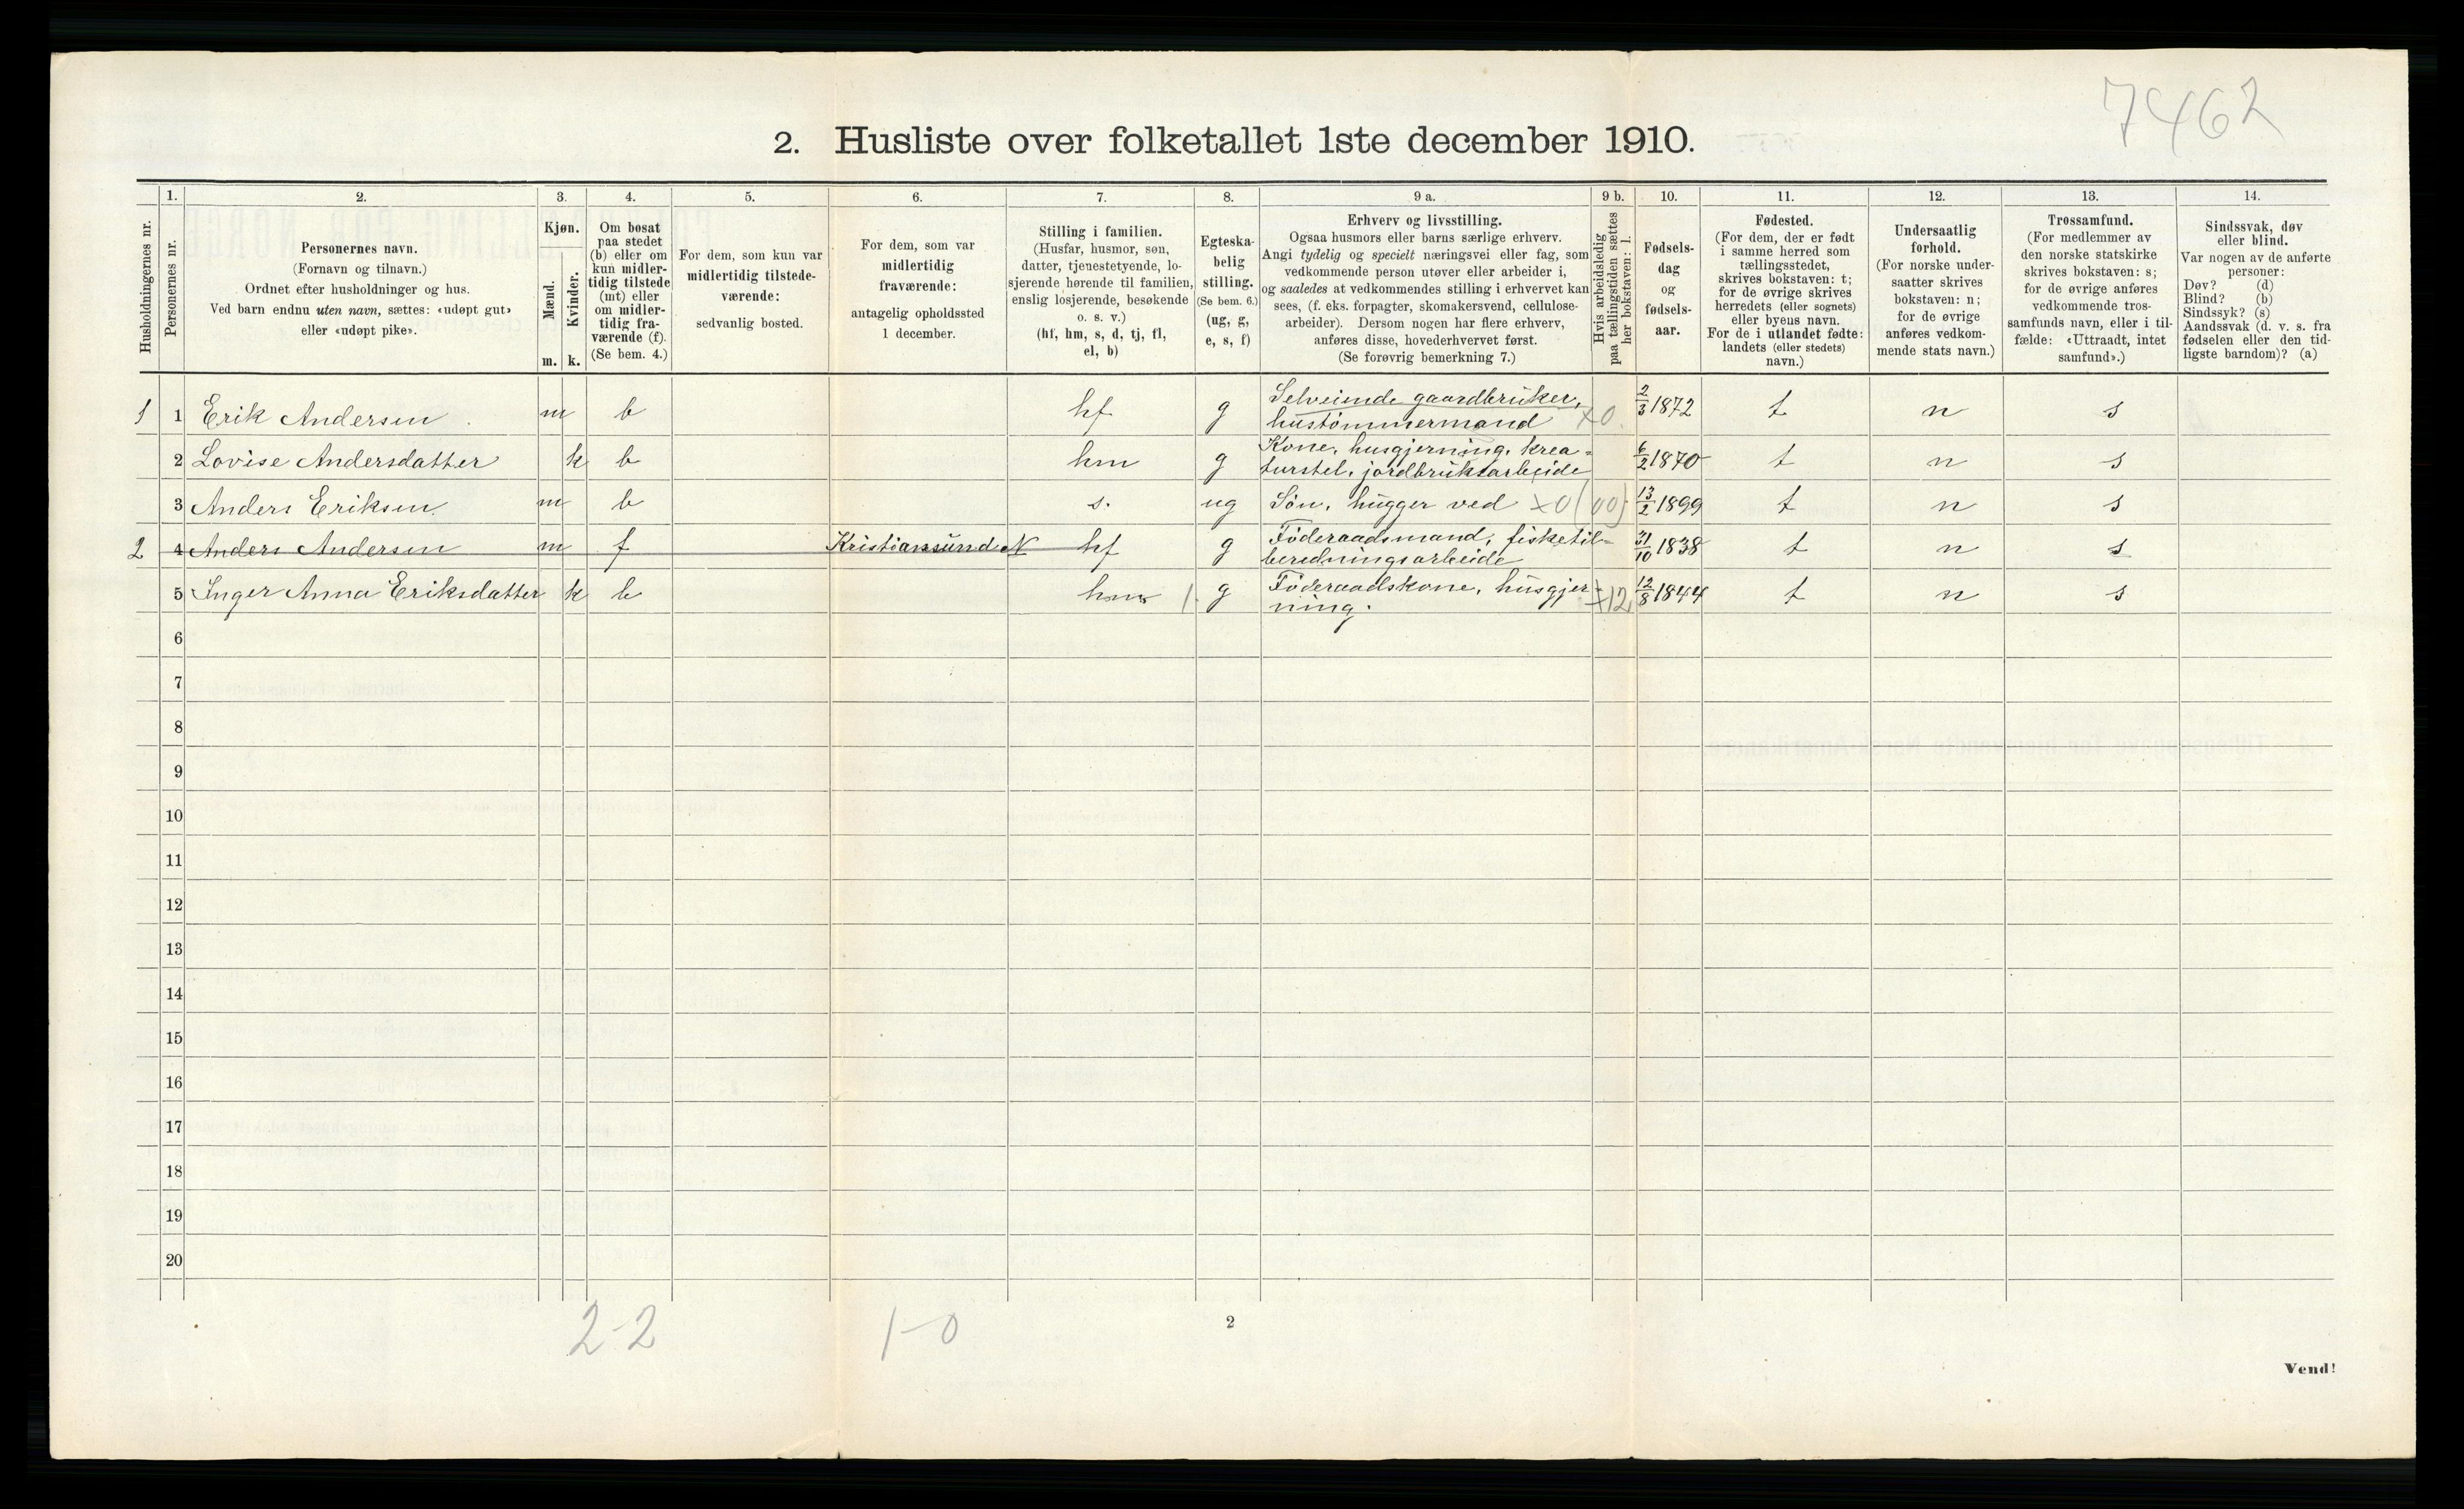 7462
2. Husliste over folketallet 1ste december 1910.
Husholdningernes nr.
1.
Personernes nr.
2.
Personernes navn.
(Fornavn og tilnavn.)
Ordnet efter husholdninger og hus.
Ved barn endnu uten navn, sættes: «udøpt gut»
eller «udøpt pike».
3.
Kjøn.
Mænd.
Kvinder.
m. k.
4.
Om bosat
paa stedet
(b) eller om
kun midler-
tidig tilstede
(mt) eller
om midler-
tidig fra-
værende (f).
(Se bem. 4.)
5.
For dem, som kun var
midlertidig tilstede-
værende:
sedvanlig bosted.
6.
For dem, som var
midlertidig
fraværende:
antagelig opholdssted
1 december.
7.
Stilling i familien.
(Husfar, husmor, søn,
datter, tjenestetyende, lo-
sjerende hørende til familien,
enslig losjerende, besøkende
o. s. v.)
(hf, hm, s, d, tj, fl,
el, b)
8.
Egteska-
belig
stilling.
(Se bem. 6.)
(ug, g,
e, s, f)
9 a.
Erhverv og livsstilling.
Ogsaa husmors eller barns særlige erhverv.
Angi tydelig og specielt næringsvei eller fag, som
vedkommende person utøver eller arbeider i,
og saaledes at vedkommendes stilling i erhvervet kan
sees, (f. eks. forpagter, skomakersvend, cellulose-
arbeider). Dersom nogen har flere erhverv,
anføres disse, hovederhvervet først.
(Se forøvrig bemerkning 7.)
9 b.
Hvis arbeidsledig
paa tællingstiden sættes
her bokstaven: l.
10.
Fødsels-
dag
og
fødsels-
aar.
11.
Fødested.
(For dem, der er født
i samme herred som
tællingsstedet,
skrives bokstaven: t;
for de øvrige skrives
herredets (eller sognets)
eller byens navn.
For de i utlandet fødte:
landets (eller stedets)
navn.)
12.
Undersaatlig
forhold.
(For norske under-
saatter skrives
bokstaven: n;
for de øvrige
anføres vedkom-
mende stats navn.)
13.
Trossamfund.
(For medlemmer av
den norske statskirke
skrives bokstaven: s;
for de øvrige anføres
vedkommende tros-
samfunds navn, eller i til-
fælde: «Uttraadt, intet
samfund».)
14.
Sindssvak, døv
eller blind.
Var nogen av de anførte
personer:
Døv? (d)
Blind? (b)
Sindssyk? (s)
Aandssvak (d. v. s. fra
fødselen eller den tid-
ligste barndom)? (a)
1 1 Erik Andersen m b hf g Selveiende gaardbruker,
hustømmermand x0 2/3 1872 t n s
2 Lovise Andersdatter k b hm g Kone, husgjerning, krea-
turstel, jordbruksarbeide 6/2 1870 t n s
3 Anders Eriksen m b s. ug Søn, hugger ved x0 (00) 13/2 1899 t n s
2 4 Anders Andersen m f Kristiansund N hf g Føderaadsmand, fisketil-
beredningsarbeide 31/10 1838 t n s
5 Inger Anna Eriksdatter k b hm 1. g Føderaadskone, husgjer-
ning. +12 12/8 1844 t n s
6
7
8
9
10
11
12
13
14
15
16
17
18
19
20
2-2 1-0
2
Vend!